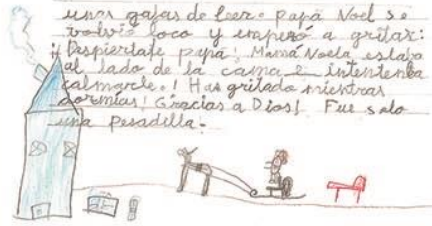 unas gafas de leer. Papá Noel se
volvió loco y empezó a gritar:
¡¡Despiertate papá! Mamá Noela estaba
al lado de la cama e intentenba
calmarle. ! Has gritado mientras
dormías! Gracias a Dios! Fue solo
una pesadilla.